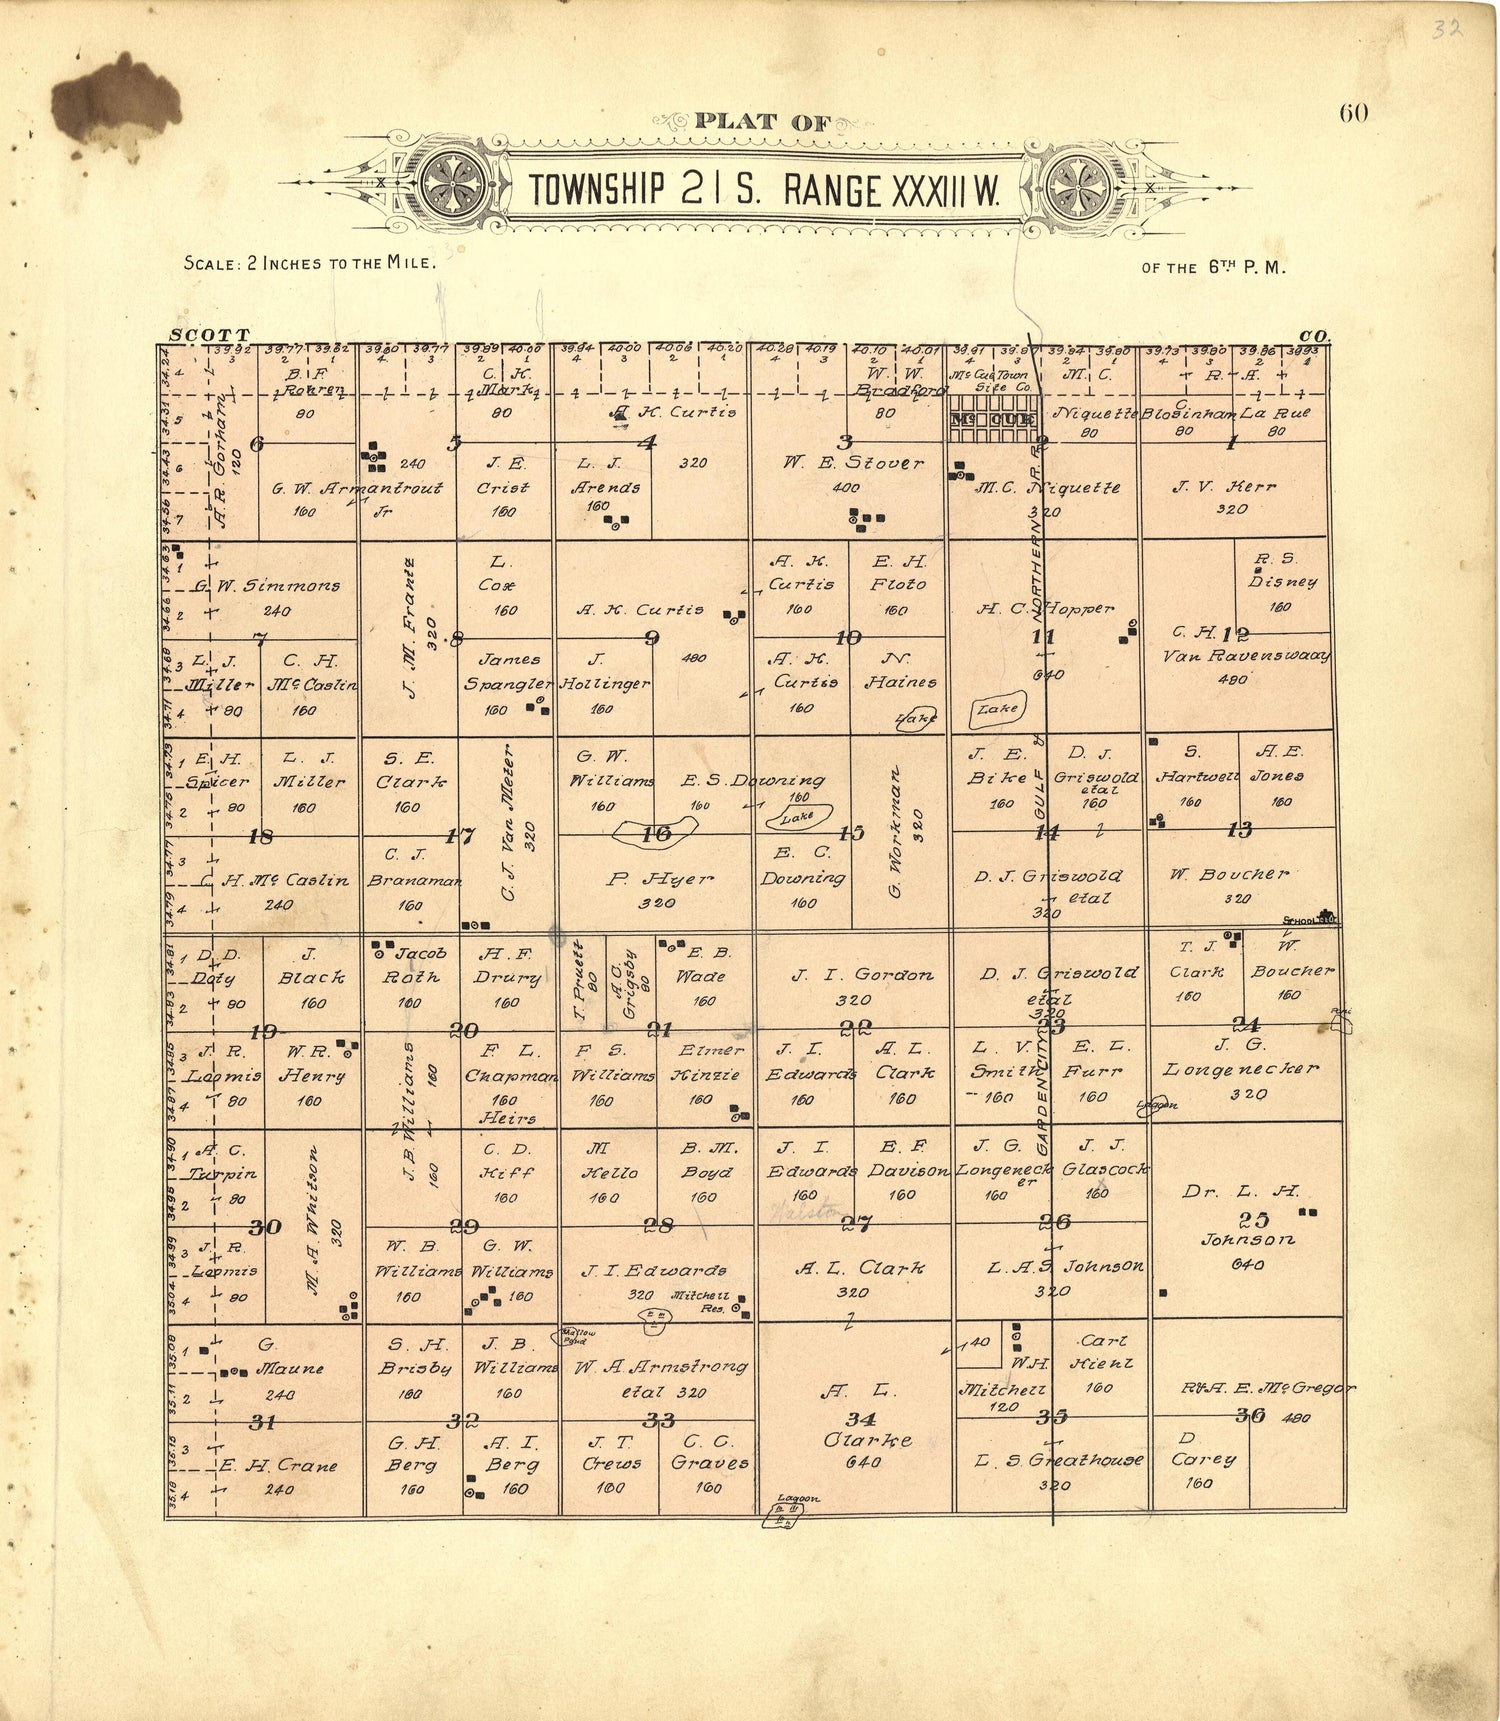 32
60
PLAT OF
TOWNSHIP 21 S. RANGE XXXIII W.
SCALE: 2 INCHES TO THE MILE.
OF THE 6TH P. M.
SCOTT
CO.
39.92 39.77 39.82 39.80 39.77 39.89 40.00 39.94 40.00 40.06 40.20 40.28 40.19 40.10 40.01 39.91 39.87 39.84 39.80 39.73 39.80 39.86 39.93
B. F.
Rohrer
80
C. H.
Mark
80
A. K. Curtis
320
W. W.
Bradford
80
Mc Cue Town
Site Co.
Mc CUE
M. C.
Niquette
80
C.
Blosinham
80
R. A.
La Rue
80
A. R. Gorham
120
6
5
4
3
2
1
G. W. Armantrout
160
Jr
240
J. E.
Crist
160
L. J.
Arends
160
W. E. Stover
400
M. C. Niquette
320
J. V. Kerr
320
G. W. Simmons
240
J. M. Frantz
320
L.
Cox
160
A. K. Curtis
480
A. K.
Curtis
160
E. H.
Floto
160
H. C. Hopper
640
R. S.
Disney
160
7
8
9
10
11
12
L. J.
Miller
80
C. H.
Mc Caslin
160
James
Spangler
160
J.
Hollinger
160
A. K.
Curtis
160
N.
Haines
Lake
Lake
C. H.
Van Ravenswaay
480
E. H.
Spicer
80
L. J.
Miller
160
S. E.
Clark
160
C. J. Van Meter
320
G. W.
Williams
160
E. S. Downing
160
160
Lake
G. Workman
320
J. E.
Bike
160
D. J.
Griswold
etal
160
S.
Hartwell
160
A. E.
Jones
160
18
17
16
15
14
13
C. H. Mc Caslin
240
C. J.
Branaman
160
P. Hyer
320
E. C.
Downing
160
D. J. Griswold
etal
320
W. Boucher
320
SCHOOL
D. D.
Doty
80
J.
Black
160
Jacob
Roth
160
H. F.
Drury
160
T. Pruett
80
A. C.
Grigsby
80
E. B.
Wade
160
J. I. Gordon
320
D. J. Griswold
etal
320
T. J.
Clark
160
W.
Boucher
160
19
20
21
22
23
24
J. R.
Loomis
80
W. R.
Henry
160
J. B. Williams
160
160
F. L.
Chapman
160
Heirs
F. S.
Williams
160
Elmer
Kinzie
160
J. I.
Edwards
160
A. L.
Clark
160
L. V.
Smith
160
E. L.
Furr
160
J. G.
Longenecker
320
Lagoon
A. C.
Turpin
80
M. A. Whitson
320
C. D.
Kiff
160
M
Kello
160
B. M.
Boyd
160
J. I.
Edwards
160
E. F.
Davison
160
J. G.
Longeneck
er
160
J. J.
Glascock
160
Dr. L. H.
25
Johnson
640
30
29
28
27
26
J. R.
Loomis
80
W. B.
Williams
160
G. W.
Williams
160
J. I. Edwards
320
Mitchell
Res.
A. L. Clark
320
L. A. S. Johnson
320
GARDEN CITY GULF & NORTHERN R. R.
G.
Maune
240
S. H.
Brisby
160
J. B.
Williams
160
Shallow
Pond
W. A. Armstrong
etal 320
A. L.
34
Clarke
640
40
W. H.
Mitchell
120
Carl
Kienl
160
R. & A. E. Mc Gregor
480
31
32
33
35
36
E. H. Crane
240
G. H.
Berg
160
A. I.
Berg
160
J. T.
Crews
160
C. C.
Graves
160
L. S. Greathouse
320
D
Carey
160
Lagoon